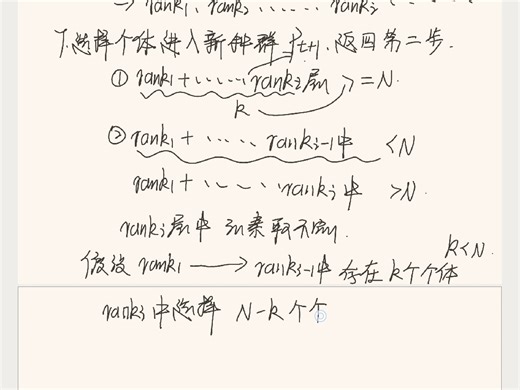 → rank₁、rank₂ …… rankᵢ …
7.选择个体进入新种群 Pₜ₊₁,返回第二步.
① rank₁+……rankᵢ层 >=N.
k
② rank₁+……rankᵢ₋₁中 <N
rank₁+……rankᵢ中 >N.
rankᵢ层中
k<N.
假设 rank₁ → rankᵢ₋₁中 存在 k个个体
rankᵢ中选择 N-k个个